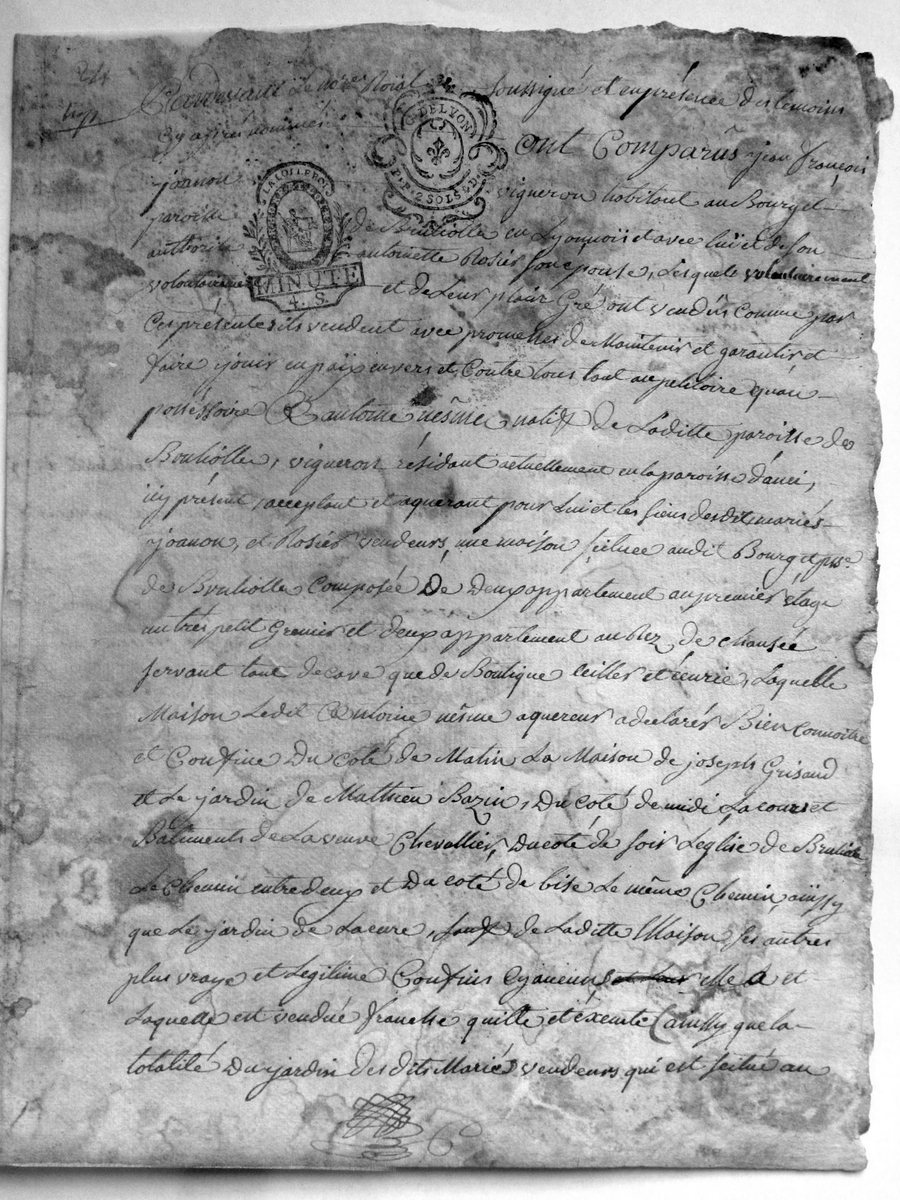 Pardevant Le no.re Roial soussigné et en présence des temoins
cy après nommés
ont Comparûs jean françois
joanon vigneron habitant au Bourg et
paroisse de Brulliolle en Lyonnois et avec lui et de son
authorité antoinette Rosier son epouse, Lesquels volontairement
volontairement et de Leur plain Gré ont vendûs comme par
Ces présentes ils vendent avec promesses de Maintenir et garantir et
faire jouir en paix envers et Contre tous tant au petitoire qu'au
possessoire a antoine même natif de Laditte paroisse de
Brulliolle, vigneron résidant actuellement en la paroisse d'anci,
icy présent, acceptant et aquerant pour Lui et les siens desdit mariés
joanon, et Rosier vendeurs, une maison scituée audit Bourg et p.sse
de Brulliolle composée De Deux appartement au premier étage
autres petit Grenier et deux appartement au Rez de chausée
servant tant de cave que de Boutique celiler et écurie, Laquelle
Maison Ledit antoine même aquereur a declarés Bien Connoitre
et Confine Du coté de Matin La Maison de joseph Grisaud
et Le jardin de Mathieu Bazin, Du coté de midi La cour et
Bâtiments de La veuve Chevallier, Du coté de soir L'eglise de Brulliolle
Le chemin entre deux et Du coté de bise Le même Chemin, ainsy
que Le jardin de La cure, sauf de Laditte Maison ses autres
plus vrays et Legitime Confins ejanciens elle a et
Laquelle est vendue franche quitte et éxemte ainssy que la
totalité Du jardin desdits Mariés vendeurs qui est scitué au
G. DE LYON
P.P. 2 SOLS 8 D.
LA LOI LE ROI
MINUTE
4. S.